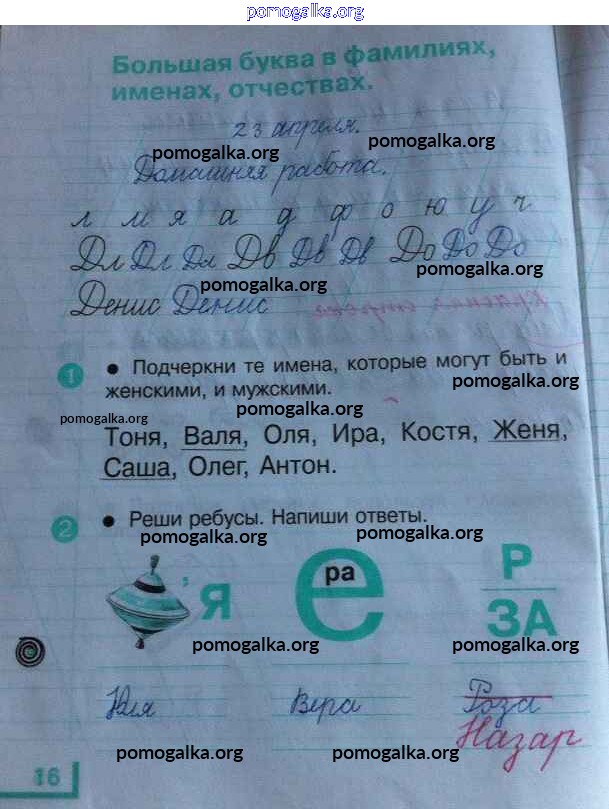 pomogalka.org
Большая буква в фамилиях,
именах, отчествах.
23 апреля.
pomogalka.org
pomogalka.org
Домашняя работа.
л м я а д ф о ю у ч
Дл Дл Дл Дв Дв Дв До До До
pomogalka.org
pomogalka.org
Денис Денис
1 • Подчеркни те имена, которые могут быть и
женскими, и мужскими.
pomogalka.org
pomogalka.org
pomogalka.org
Тоня, Валя, Оля, Ира, Костя, Женя,
Саша, Олег, Антон.
2 • Реши ребусы. Напиши ответы.
pomogalka.org
pomogalka.org
, Я
е ра
Р
ЗА
pomogalka.org
pomogalka.org
Юля Вера Роза
Назар
pomogalka.org
pomogalka.org
16